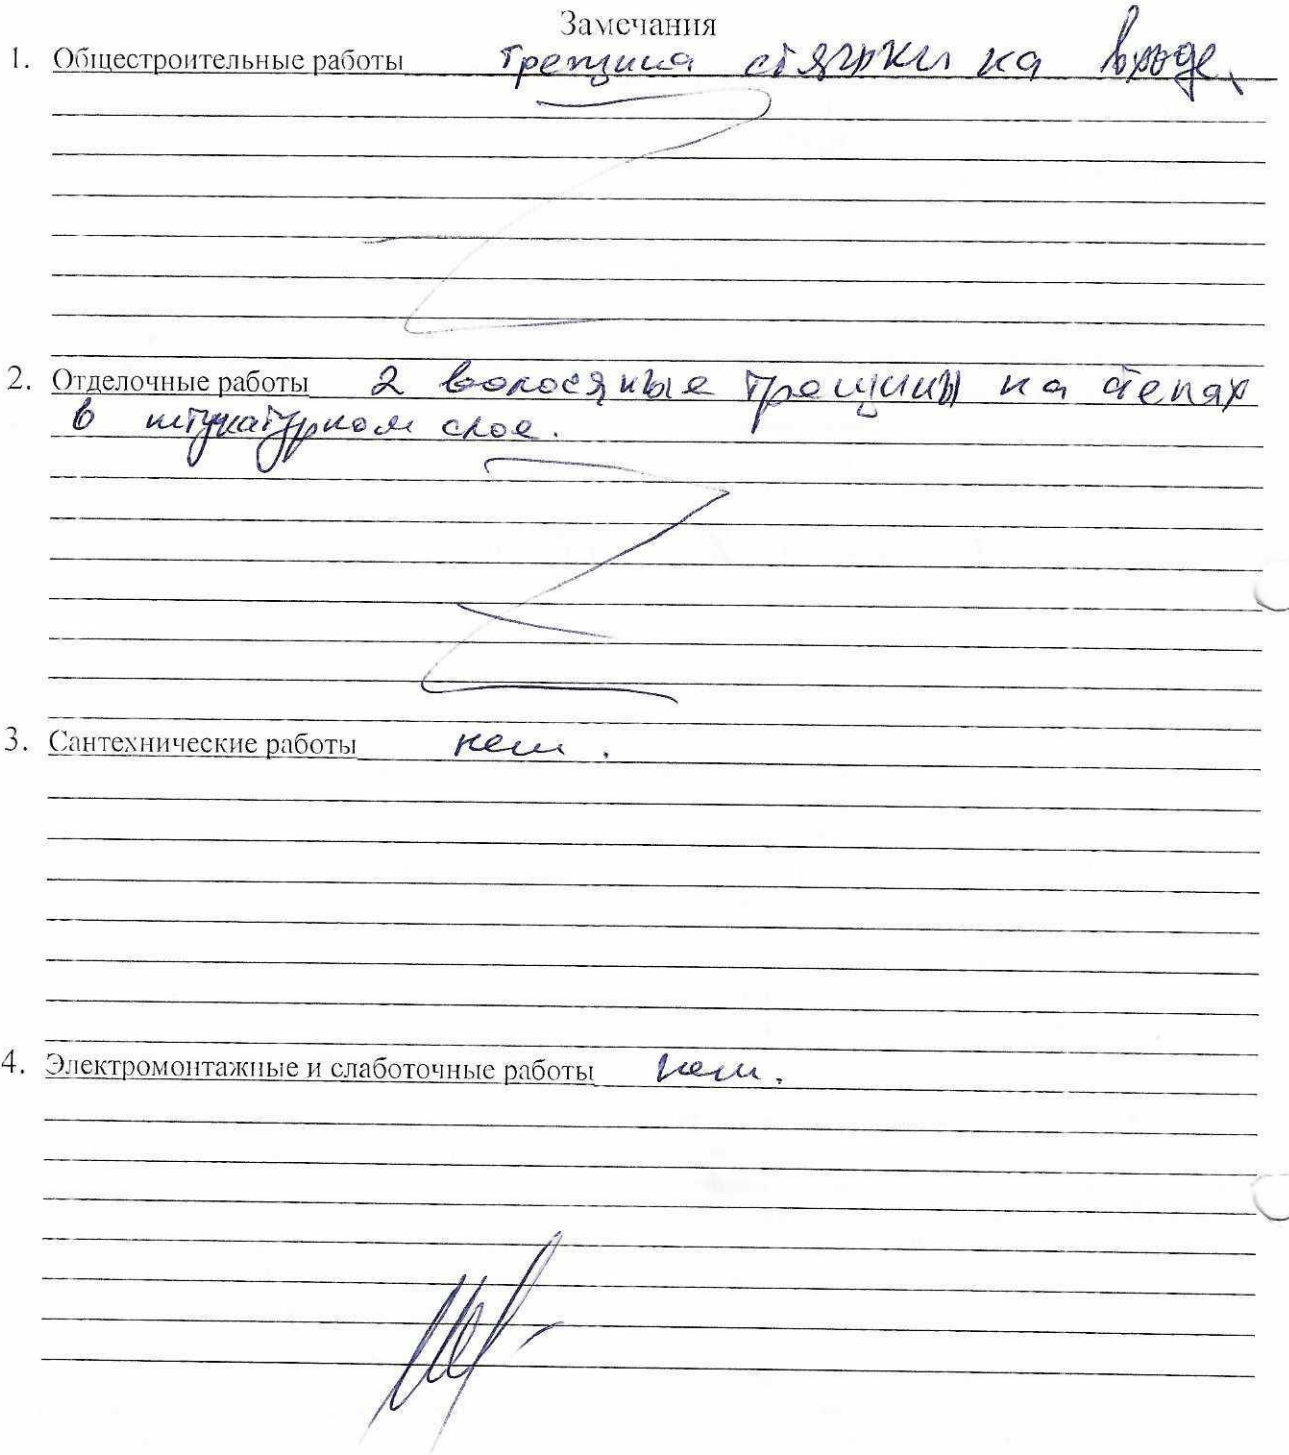 Замечания
1. Общестроительные работы трещина стяжки на входе,
2. Отделочные работы 2 волосяные трещины на стенах
в штукатурном слое.
3. Сантехнические работы нет.
4. Электромонтажные и слаботочные работы нет.